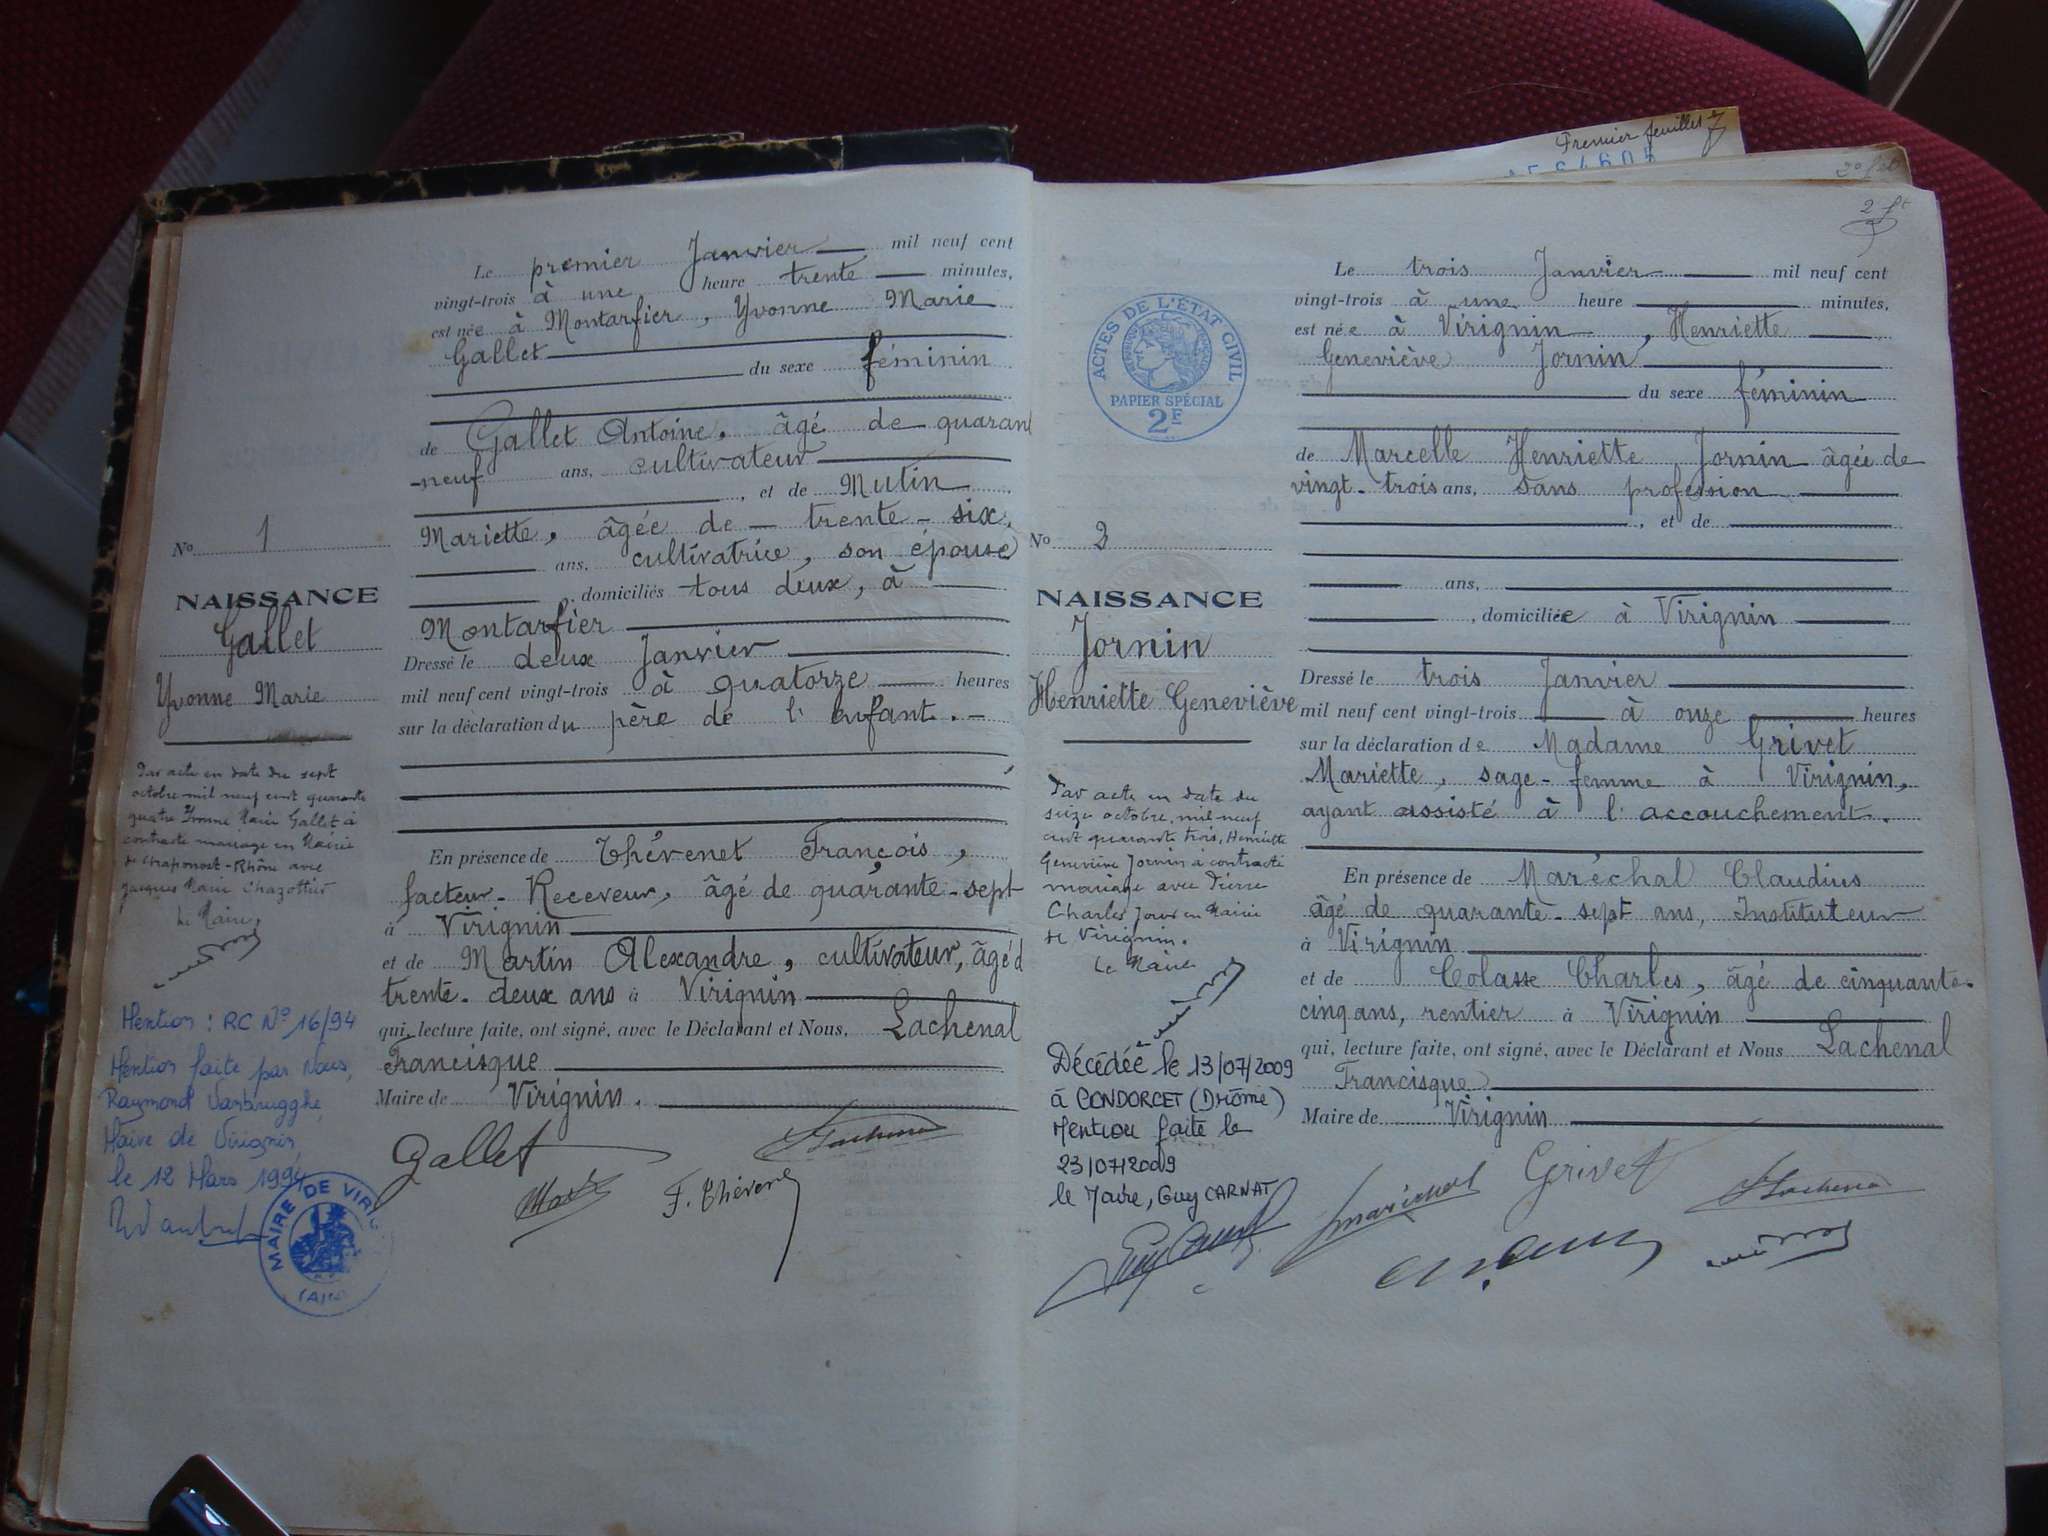 Premier feuillet
2 ft
Le premier Janvier mil neuf cent
vingt-trois à une heure trente minutes,
est née à Montarfier, Yvonne Marie
Gallet
du sexe féminin
de Gallet Antoine, âgé de quarant
-neuf ans, cultivateur
, et de Mutin
Mariette, âgée de trente-six
ans, cultivatrice, son épouse
, domiciliés tous deux, à
Montarfier
Dressé le deux Janvier
mil neuf cent vingt-trois à quatorze heures
sur la déclaration du père de l'enfant.
En présence de Thévenet François,
facteur-Receveur, âgé de quarante-sept
à Virignin
et de Martin Alexandre, cultivateur, âgé d
trente-deux ans à Virignin
qui, lecture faite, ont signé, avec le Déclarant et Nous, Lachenal
Francisque
Maire de Virignin.
Gallet
F. Thévenet
No 1
NAISSANCE
Gallet
Yvonne Marie
Par acte en date du sept
octobre mil neuf cent quarante
quatre Yvonne Marie Gallet a
contracté mariage en Mairie
de Chaponost-Rhône avec
Jacques Marie Chazottier
Le Maire,
Mention : RC No 16/94
Mention faite par Nous,
Raymond Vanbrugghe
Maire de Virignin
le 12 Mars 1994
MAIRIE DE VIRIG
(Ain)
ACTES DE L'ÉTAT CIVIL
PAPIER SPÉCIAL
2F
Le trois Janvier mil neuf cent
vingt-trois à une heure minutes,
est née à Virignin, Henriette
Geneviève Jornin
du sexe féminin
de Marcelle Henriette Jornin âgée de
vingt-trois ans, sans profession
, et de
ans,
, domiciliée à Virignin
Dressé le trois Janvier
mil neuf cent vingt-trois à onze heures
sur la déclaration de Madame Grivet
Mariette, sage-femme à Virignin,
ayant assisté à l'accouchement.
En présence de Maréchal Claudius
âgé de quarante-sept ans, Instituteur
à Virignin
et de Colasse Charles, âgé de cinquante-
cinq ans, rentier à Virignin
qui, lecture faite, ont signé, avec le Déclarant et Nous Lachenal
Francisque
Maire de Virignin
Grivet
No 2
NAISSANCE
Jornin
Henriette Geneviève
Par acte en date du
seize octobre, mil neuf
cent quarante trois, Henriette
Geneviève Jornin a contracté
mariage avec Pierre
Charles en Mairie
de Virignin.
Le Maire
Décédée le 13/07/2009
à CONDORCET (Drôme)
Mention faite le
23/07/2009
le Maire, Guy CARNAT